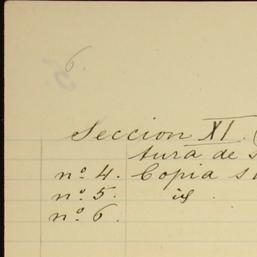 6.
Seccion XI. (
tura de s
nº 4. Copia s
nº 5. id.
nº 6.